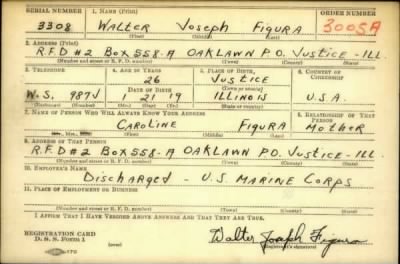 SERIAL NUMBER 1. NAME (Print) ORDER NUMBER
3308 WALTER JOSEPH FIGURA 3005A
(First) (Middle) (Last)
2. ADDRESS (Print)
R.F.D #2 BOX 558-A OAKLAWN P.O. JUSTICE - ILL.
(Number and street or R. F. D. number) (Town) (County) (State)
3. TELEPHONE 4. AGE IN YEARS 5. PLACE OF BIRTH 6. COUNTRY OF CITIZENSHIP
26 JUSTICE
W.S. 987J DATE OF BIRTH (Town or county)
1 21 19 ILLINOIS U.S.A.
(Exchange) (Number) (Mo.) (Day) (Yr.) (State or country)
7. NAME OF PERSON WHO WILL ALWAYS KNOW YOUR ADDRESS 8. RELATIONSHIP OF THAT PERSON
CAROLINE FIGURA MOTHER
(Mr., Mrs., Miss) (First) (Middle) (Last)
9. ADDRESS OF THAT PERSON
R.F.D #2 BOX 558-A OAKLAWN P.O. JUSTICE - ILL.
(Number and street or R. F. D. number) (Town) (County) (State)
10. EMPLOYER'S NAME
DISCHARGED - U.S. MARINE CORPS
11. PLACE OF EMPLOYMENT OR BUSINESS
(Number and street or R. F. D. number) (Town) (County) (State)
I AFFIRM THAT I HAVE VERIFIED ABOVE ANSWERS AND THAT THEY ARE TRUE.
REGISTRATION CARD
D. S. S. FORM 1 (over) Walter Joseph Figura
(Registrant's signature)